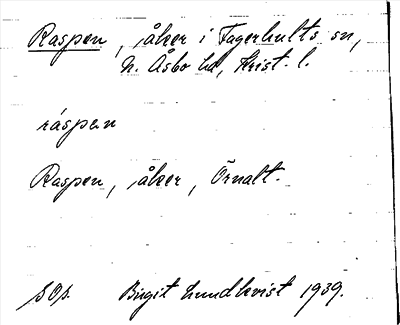 Raspen, åker i Fagerhults sn,
N. Åsbo hd, Krist. l.
ráspen
Raspen, åker, Örnalt.
SOS. Birgit Lundkvist 1939.